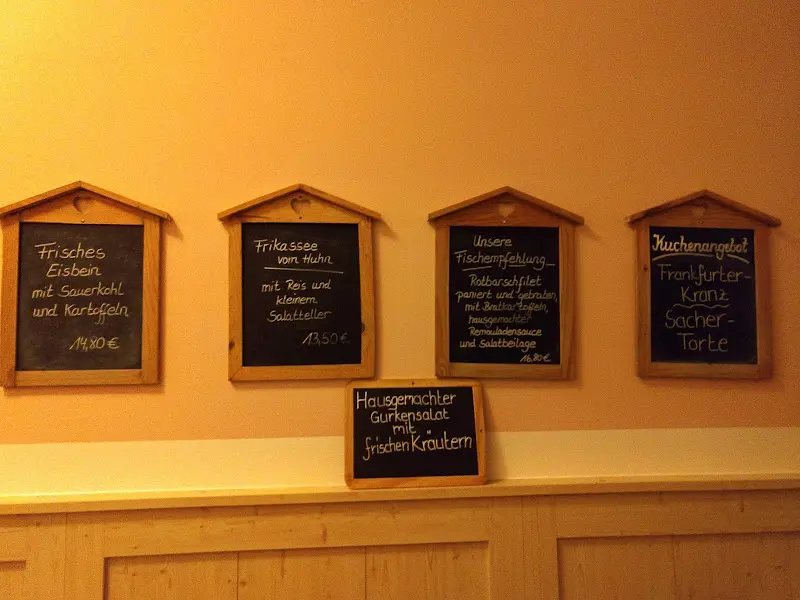 Frisches
Eisbein
mit Sauerkohl
und Kartoffeln
14,80 €
Frikassee
vom Huhn
mit Reis und
kleinem
Salatteller
13,50 €
Unsere
Fischempfehlung
Rotbarschfilet
paniert und gebraten,
mit Bratkartoffeln,
hausgemachter
Remouladensauce
und Salatbeilage
16,80 €
Kuchenangebot
Frankfurter-
Kranz
Sacher-
Torte
Hausgemachter
Gurkensalat
mit
frischen Kräutern